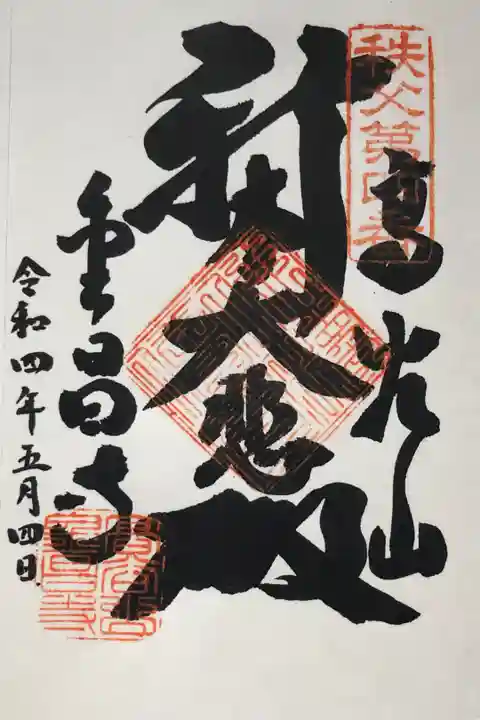 秩父第四番
高谷山
新木大悲殿
金昌寺
令和四年五月四日